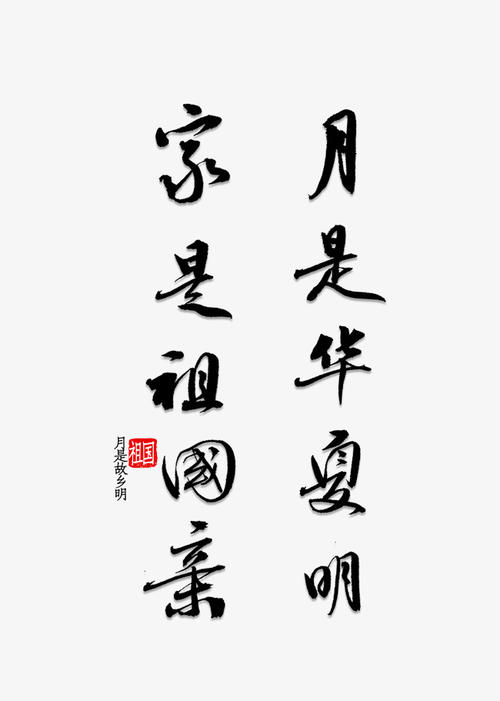 月是华夏明
家是祖國亲
祖国
月是故乡明